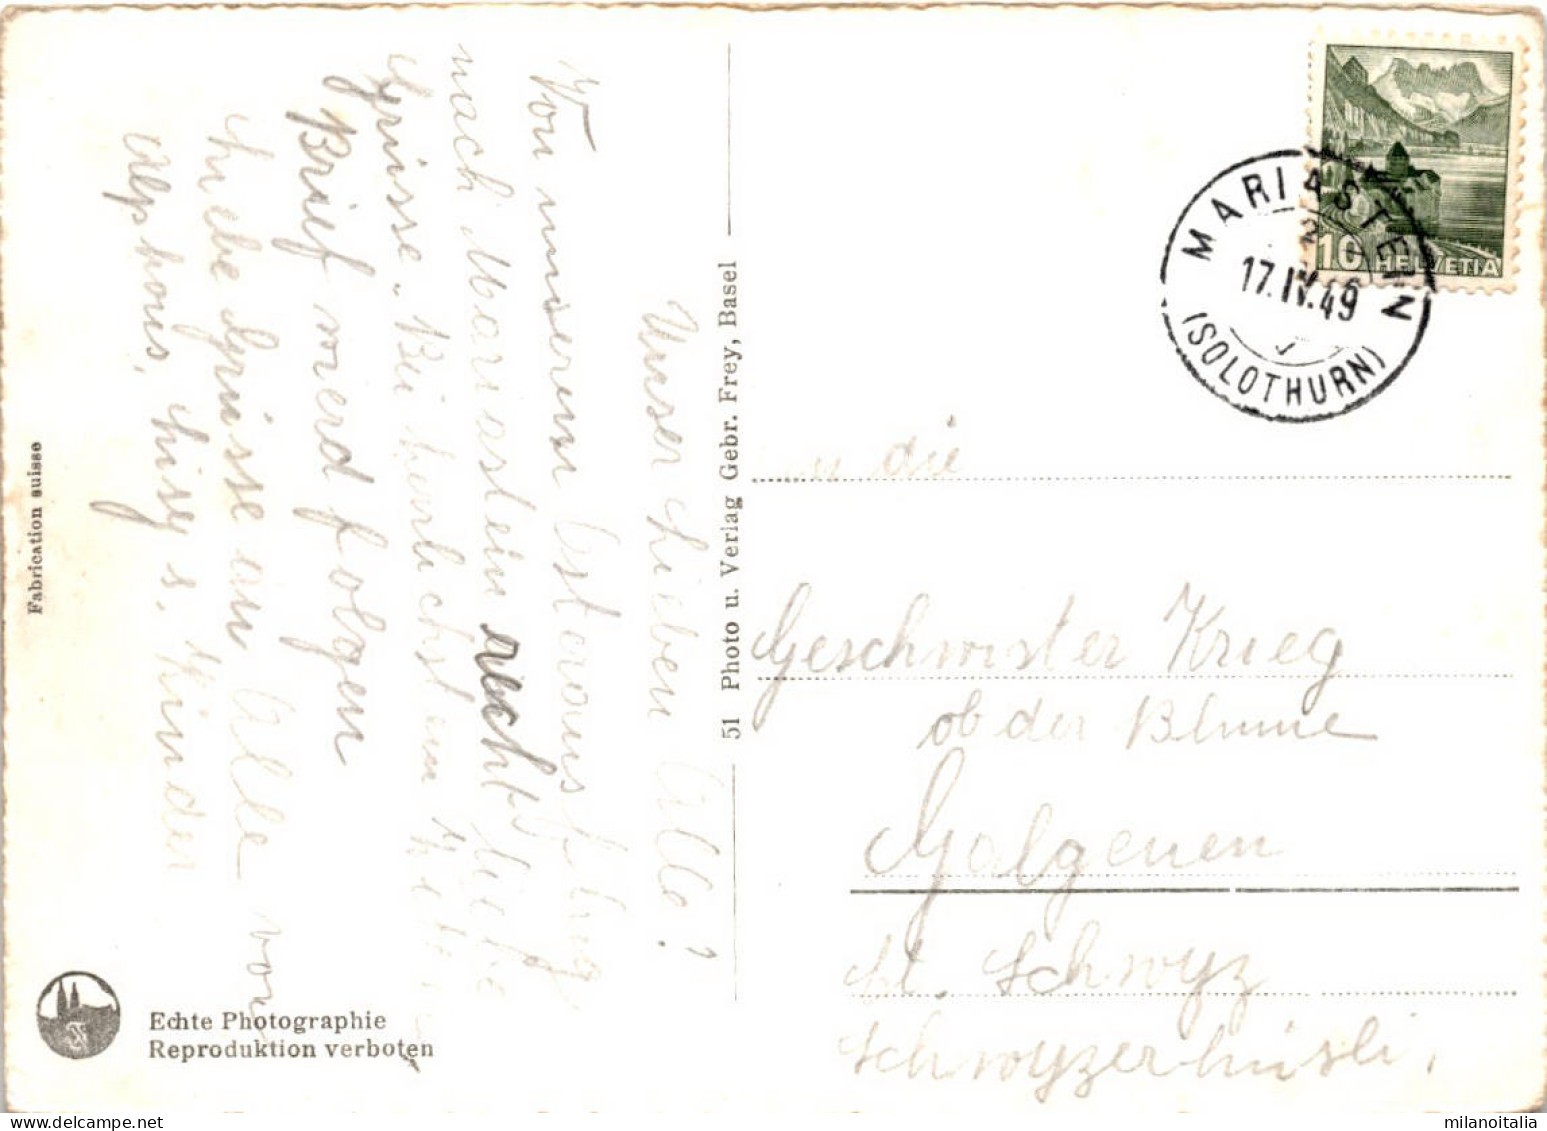 Unser Lieben Alle!
Von unserem Osterausflug
nach Mariastein recht liebe
Grüsse. Bei herlichstem
Brief werd folgen
Liebe Grüsse an Alle von
Alphons, Lisey s. Kinder
Fabrication suisse
Echte Photographie
Reproduktion verboten
51 Photo u. Verlag Gebr. Frey, Basel
10 HELVETIA
MARIASTEIN
17.IV.49
(SOLOTHURN)
An die
Geschwister Krieg
ob der Blume
Galgenen
Kt. Schwyz
Schwyzerhüsli.
milanoitalia